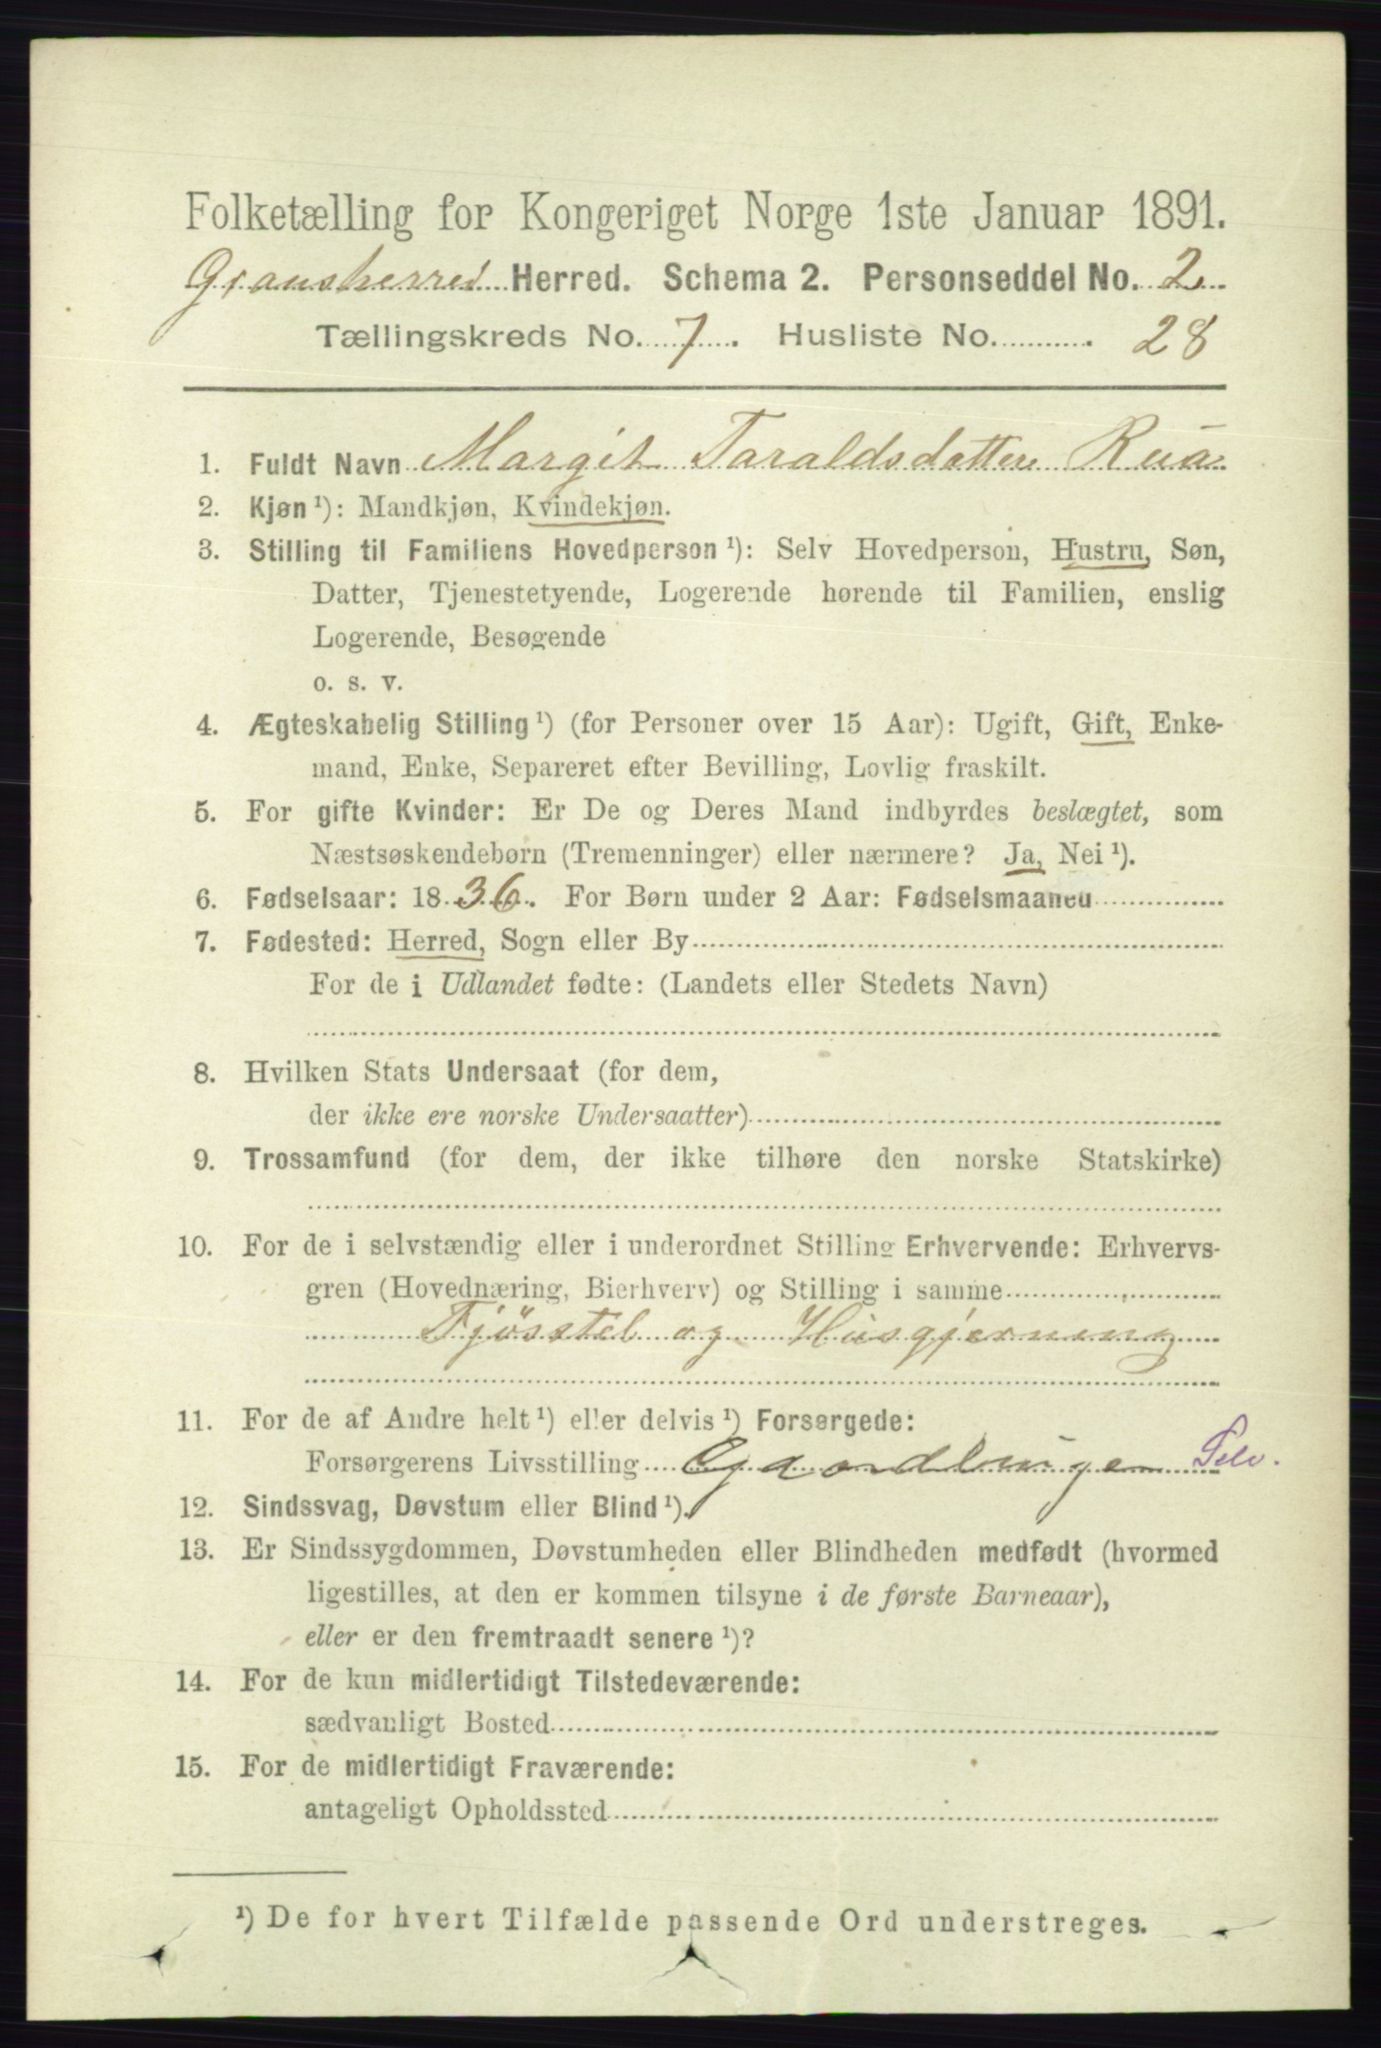 Folketælling for Kongeriget Norge 1ste Januar 1891.
Gransherred Herred. Schema 2. Personseddel No. 2
Tællingskreds No. 7. Husliste No. 28
1. Fuldt Navn Margit Taraldsdatter Rua
2. Kjøn ¹): Mandkjøn, Kvindekjøn.
3. Stilling til Familiens Hovedperson ¹): Selv Hovedperson, Hustru, Søn,
Datter, Tjenestetyende, Logerende hørende til Familien, enslig
Logerende, Besøgende
o. s. v.
4. Ægteskabelig Stilling ¹) (for Personer over 15 Aar): Ugift, Gift, Enke-
mand, Enke, Separeret efter Bevilling, Lovlig fraskilt.
5. For gifte Kvinder: Er De og Deres Mand indbyrdes beslægtet, som
Næstsøskendebørn (Tremenninger) eller nærmere? Ja, Nei ¹).
6. Fødselsaar: 1836. For Børn under 2 Aar: Fødselsmaaned
7. Fødested: Herred, Sogn eller By
For de i Udlandet fødte: (Landets eller Stedets Navn)
8. Hvilken Stats Undersaat (for dem,
der ikke ere norske Undersaatter)
9. Trossamfund (for dem, der ikke tilhøre den norske Statskirke)
10. For de i selvstændig eller i underordnet Stilling Erhvervende: Erhvervs-
gren (Hovednæring, Bierhverv) og Stilling i samme
Fjösstel og Husgjerning
11. For de af Andre helt ¹) eller delvis ¹) Forsørgede:
Forsørgerens Livsstilling Gaardbruger Selv.
12. Sindssvag, Døvstum eller Blind ¹).
13. Er Sindssygdommen, Døvstumheden eller Blindheden medfødt (hvormed
ligestilles, at den er kommen tilsyne i de første Barneaar),
eller er den fremtraadt senere ¹)?
14. For de kun midlertidigt Tilstedeværende:
sædvanligt Bosted
15. For de midlertidigt Fraværende:
antageligt Opholdssted
¹) De for hvert Tilfælde passende Ord understreges.